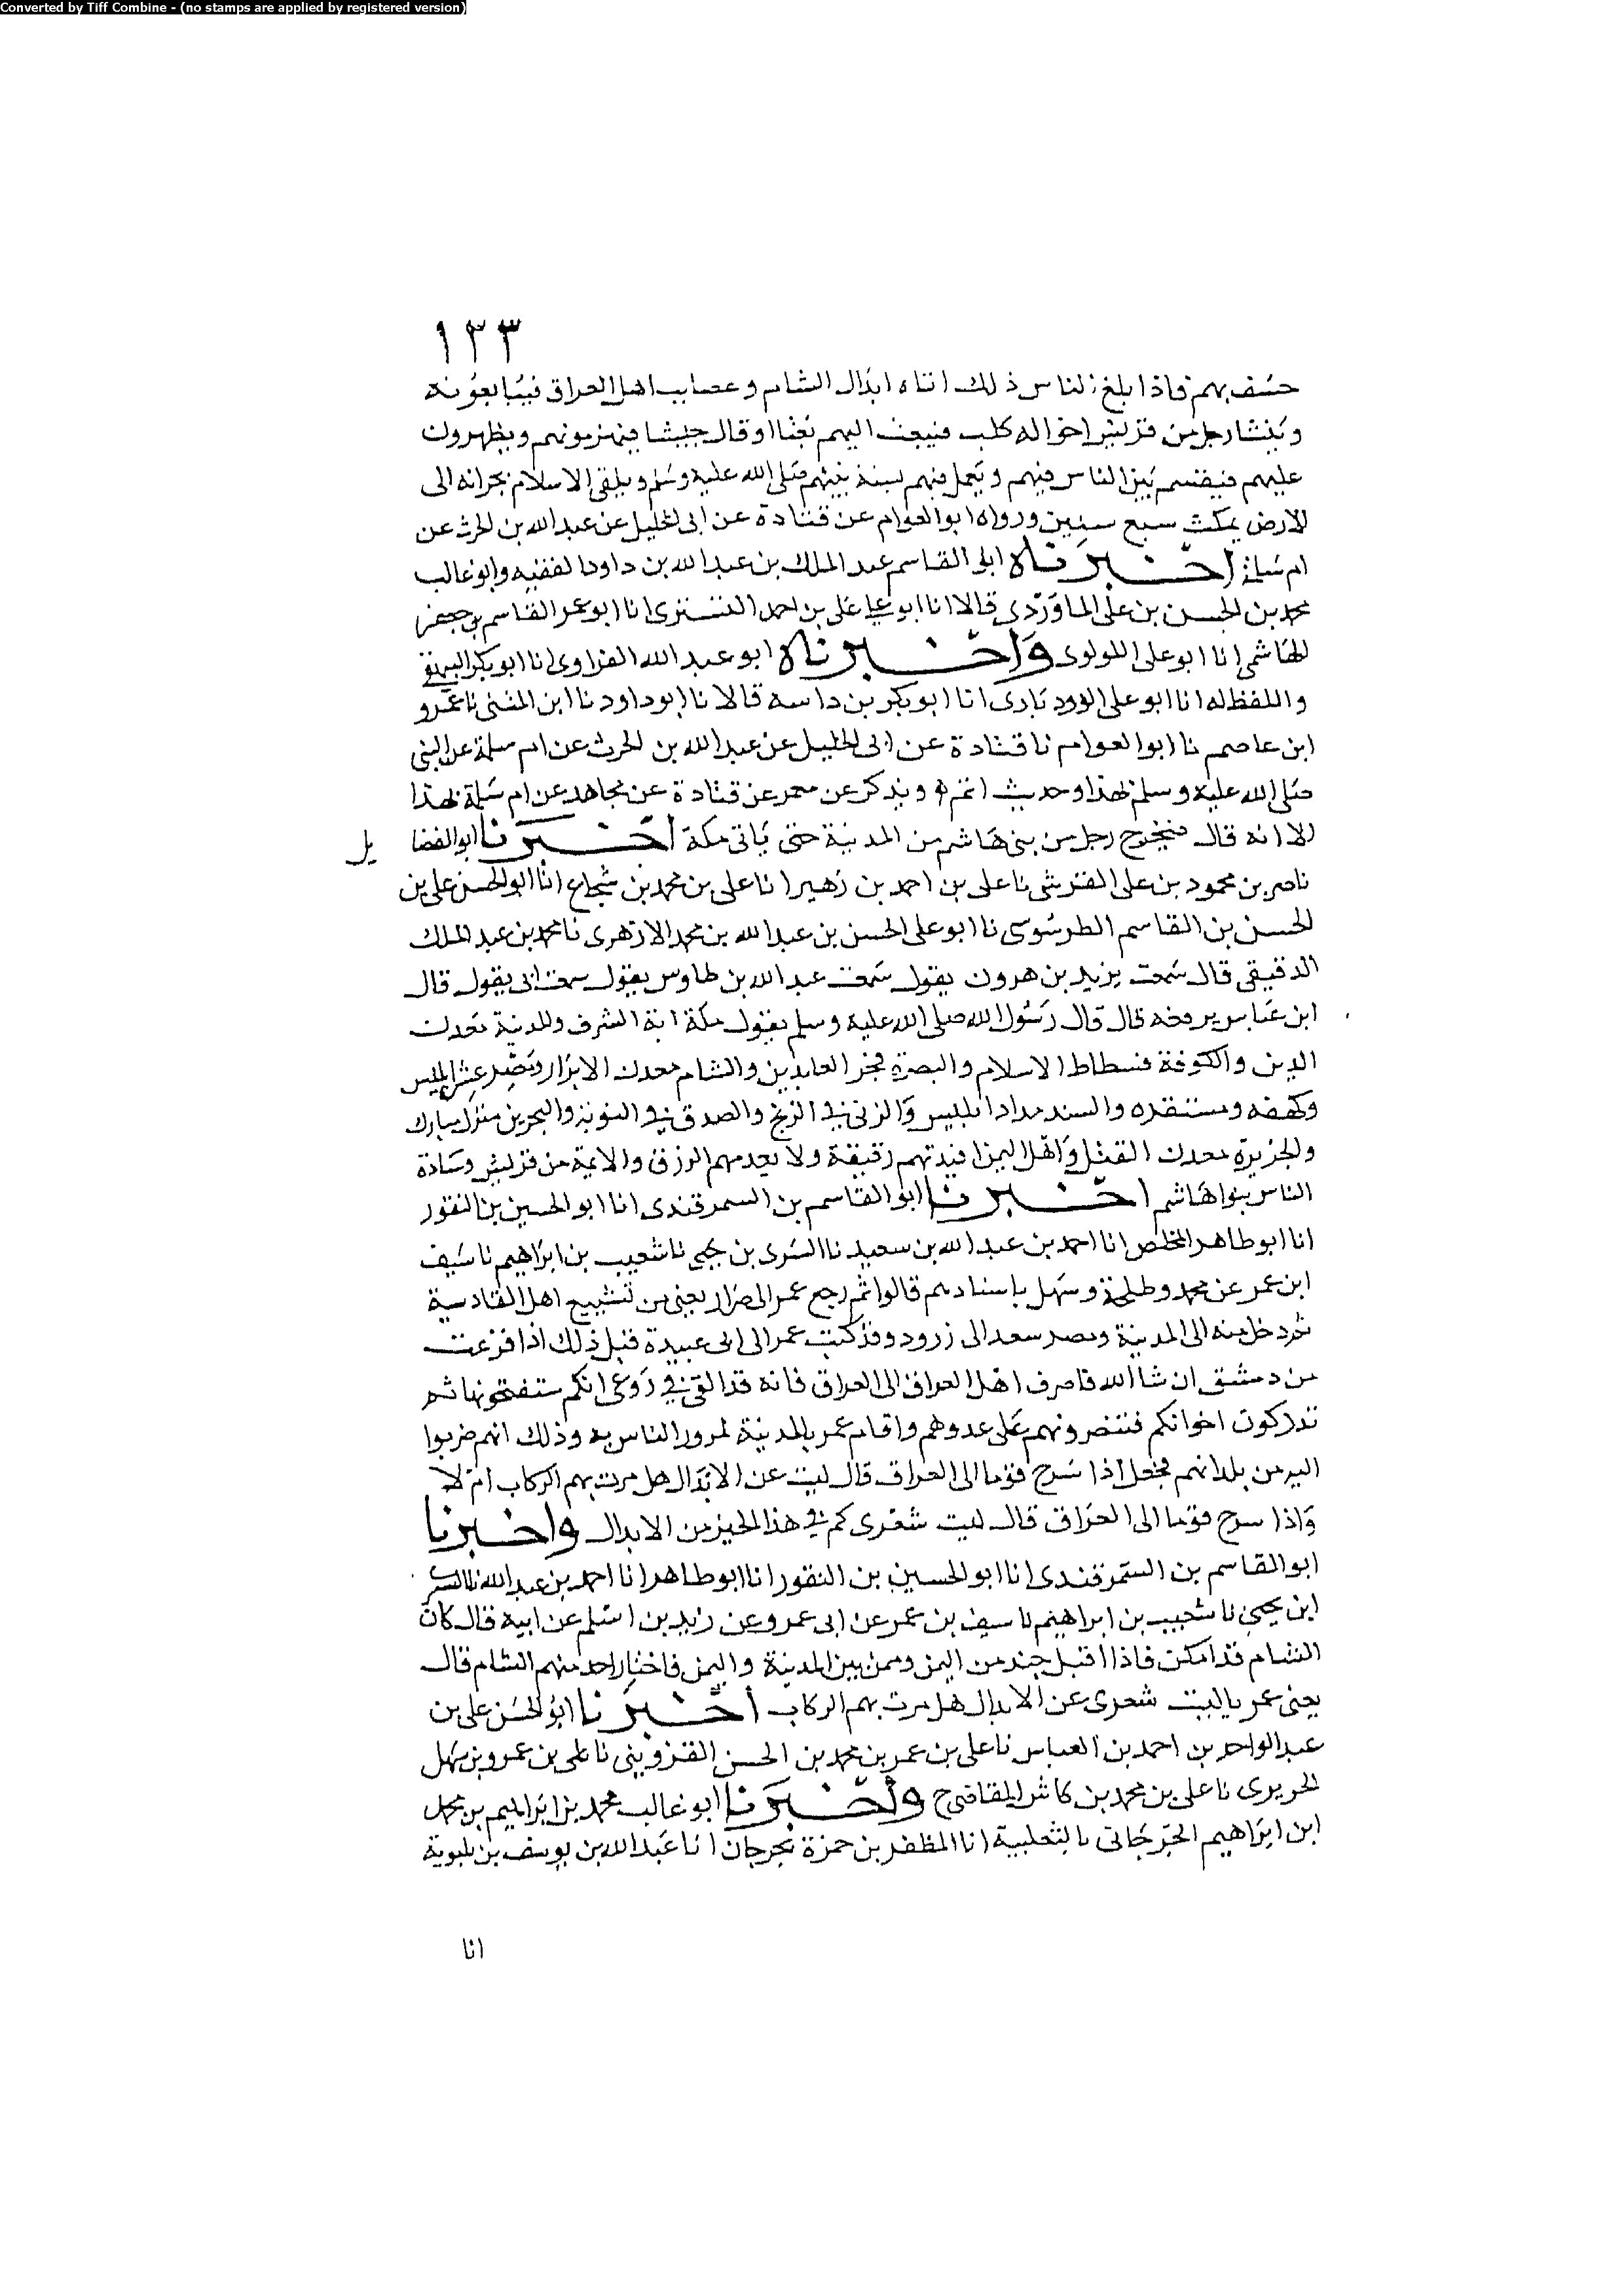 Converted by Tiff Combine - (no stamps are applied by registered version)
١٣٣
خسف بهم فاذا بلغ الناس ذلك اتاه ابدال الشام وعصايب اهل العراق فيبايعونه
وينشا رجل من قريش اخواله كلب فيبعث اليهم بعثا او قال جيشا فيهزمونهم ويظهرون
عليهم فيقسم بين الناس فيهم ويعمل فيهم بسنة نبيهم صلى الله عليه وسلم ويلقى الاسلام بجرانه الى
الارض يمكث سبع سنين ورواه ابو العوام عن قتادة عن ابى الخليل عن عبد الله بن الحرث عن
ام سلمة اخبرناه ابو القاسم عبد الملك بن عبد الله بن داود الفقيه وابو غالب
محمد بن الحسن بن على الماوردى قالا انا ابو على على بن احمد التسترى انا ابو عمر القاسم بن جعفر
الهاشمى انا ابو على اللولوى واخبرناه ابو عبد الله الفراوى انا ابو بكر البيهقى
واللفظ له انا ابو على الرودبارى انا ابو بكر بن داسه قالا نا ابو داود نا ابن المثنى نا عمرو
ابن عاصم نا ابو العوام نا قتادة عن ابى الخليل عن عبد الله بن الحرث عن ام سلمة عن النبى
صلى الله عليه وسلم بهذا وحديث اتم ويذكر عن معمر عن قتادة عن مجاهد عن ام سلمة بهذا
الا انه قال فيخرج رجل من بنى هاشم من المدينة حتى ياتى مكة اخبرنا ابو الفضا يل
ناصر بن محمود بن على القرشى نا على بن احمد بن زهير انا على بن محمد بن شجاع انا ابو الحسن على بن
الحسن بن القاسم الطرسوسى نا ابو على الحسن بن عبد الله بن محمد الازهرى نا محمد بن عبد الملك
الدقيقى قال سمعت يزيد بن هرون يقول سمعت عبد الله بن طاوس يقول سمعت ابى يقول قال
ابن عباس يرفعه قال قال رسول الله صلى الله عليه وسلم يقول مكة اية الشرف والمدينة معدن
الدين والكوفة فسطاط الاسلام والبصرة فخر العابدين والشام معدن الابرار ومصر عش ابليس
وكهفه ومستقره والسند مداد ابليس والزنى فى الزنج والصدق فى النوبة والبحرين منزل مبارك
والجزيرة معدن القتل واهل اليمن افيدتهم رقيقة ولا يعدمهم الرزق والايمة من قريش وسادة
الناس بنوا هاشم اخبرنا ابو القاسم بن السمرقندى انا ابو الحسين بن النقور
انا ابو طاهر المخلص انا احمد بن عبد الله بن سعيد نا السرى بن يحيى نا شعيب بن ابراهيم نا سيف
ابن عمر عن محمد وطلحة وسهل باسنادهم قالوا ثم رجع عمر الى صرار يعنى من تشييع اهل القادسية
ثم دخل منه الى المدينة ومصر سعد الى زرود وقد كتب عمر الى ابى عبيدة قبل ذلك اذا فرغت
من دمشق ان شا الله فاصرف اهل العراق الى العراق فانه قد القى فى روعى انكم ستفتحونها ثم
تدركون اخوانكم فتنصرونهم على عدوهم واقام عمر بالمدينة لمرور الناس به وذلك انهم ضربوا
اليه من بلدانهم فجعل اذا سرح قوما الى العراق قال ليت عن الابدال هل مرت بهم الركاب ام لا
واذا سرح قوما الى العراق قال ليت شعرى كم فى هذا الحيز من الابدال واخبرنا
ابو القاسم بن السمرقندى انا ابو الحسين بن النقور انا ابو طاهر انا احمد بن عبد الله نا السرى
ابن يحيى نا شعيب بن ابراهيم نا سيف بن عمر عن ابى عمرو عن زيد بن اسلم عن ابيه قال كان
الشام قد امكن فاذا اقبل جند من اليمن وممن بين المدينة واليمن فاختار احد منهم الشام قال
يعنى عمر يا ليت شعرى عن الابدال هل مرت بهم الركاب اخبرنا ابو الحسن على بن
عبد الواحد بن احمد بن العباس نا على بن عمر بن محمد بن الحسن القزوينى نا على بن عمرو بن سهل
الحريرى نا على بن محمد بن كاس القاضى ح واخبرنا ابو غالب محمد بن ابراهيم بن محمد
ابن ابراهيم الجرجانى بالثعلبية انا المظفر بن حمزة بجرجان انا عبد الله بن يوسف بن بابوية
انا